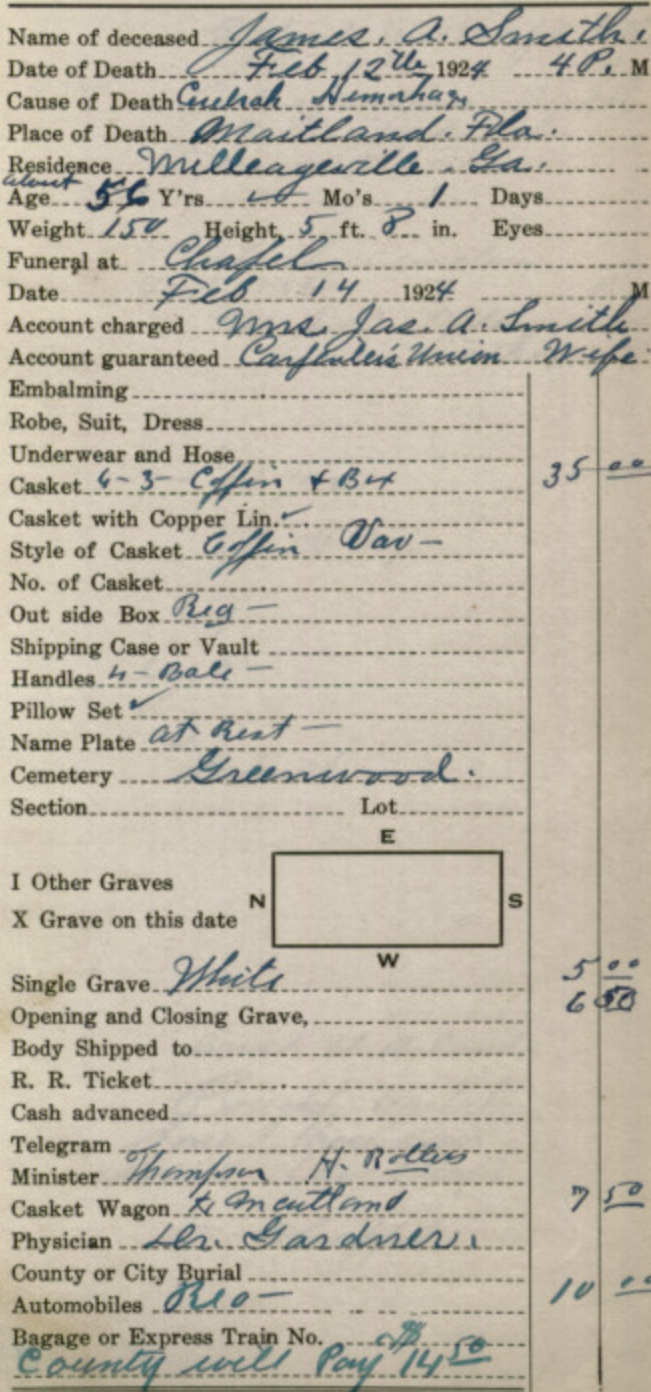 Name of deceased James. A. Smith.
Date of Death Feb 12th 1924 4 P. M
Cause of Death Hemorhage
Place of Death Maitland. Fla.
Residence Milleageville. Ga.
about
Age 56 Y'rs Mo's 1 Days
Weight 150 Height, 5 ft. 8 in. Eyes
Funeral at Chapel
Date Feb 14 1924 M
Account charged Mrs. Jas. A. Smith
Account guaranteed Carpenter's Union Wife
Embalming
Robe, Suit, Dress
Underwear and Hose
Casket 6-3- Coffin + Box 35 00
Casket with Copper Lin. ✓
Style of Casket Coffin
No. of Casket
Out side Box Reg —
Shipping Case or Vault
Handles 4 - Bale —
Pillow Set ✓
Name Plate at Rest —
Cemetery Greenwood.
Section Lot
E
I Other Graves
N S
X Grave on this date
W
Single Grave White 5 00
Opening and Closing Grave, 6 50
Body Shipped to
R. R. Ticket
Cash advanced
Telegram
Minister Thompson H.
Casket Wagon to Maitland 7 50
Physician Dr. Gardner.
County or City Burial
Automobiles Reo — 10 00
Bagage or Express Train No.
County will Pay 14 50